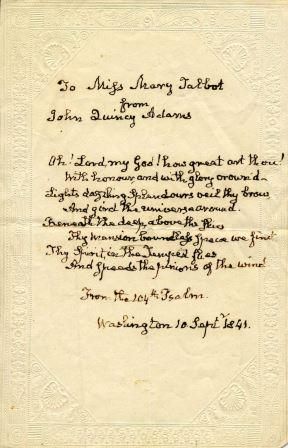 To Miss Mary Talbot
from
John Quincy Adams
Oh! Lord, my God! how great art thou!
With honour and with glory crown'd
Light's dazzling splendours veil thy brow
And gird the universe around.
Beneath the deep, above the skies
Thy mansion boundless space we find
Thy Spirit in the Tempest flies
And speeds the pinions of the wind.
From the 104th Psalm.
Washington 10 Septr. 1841.